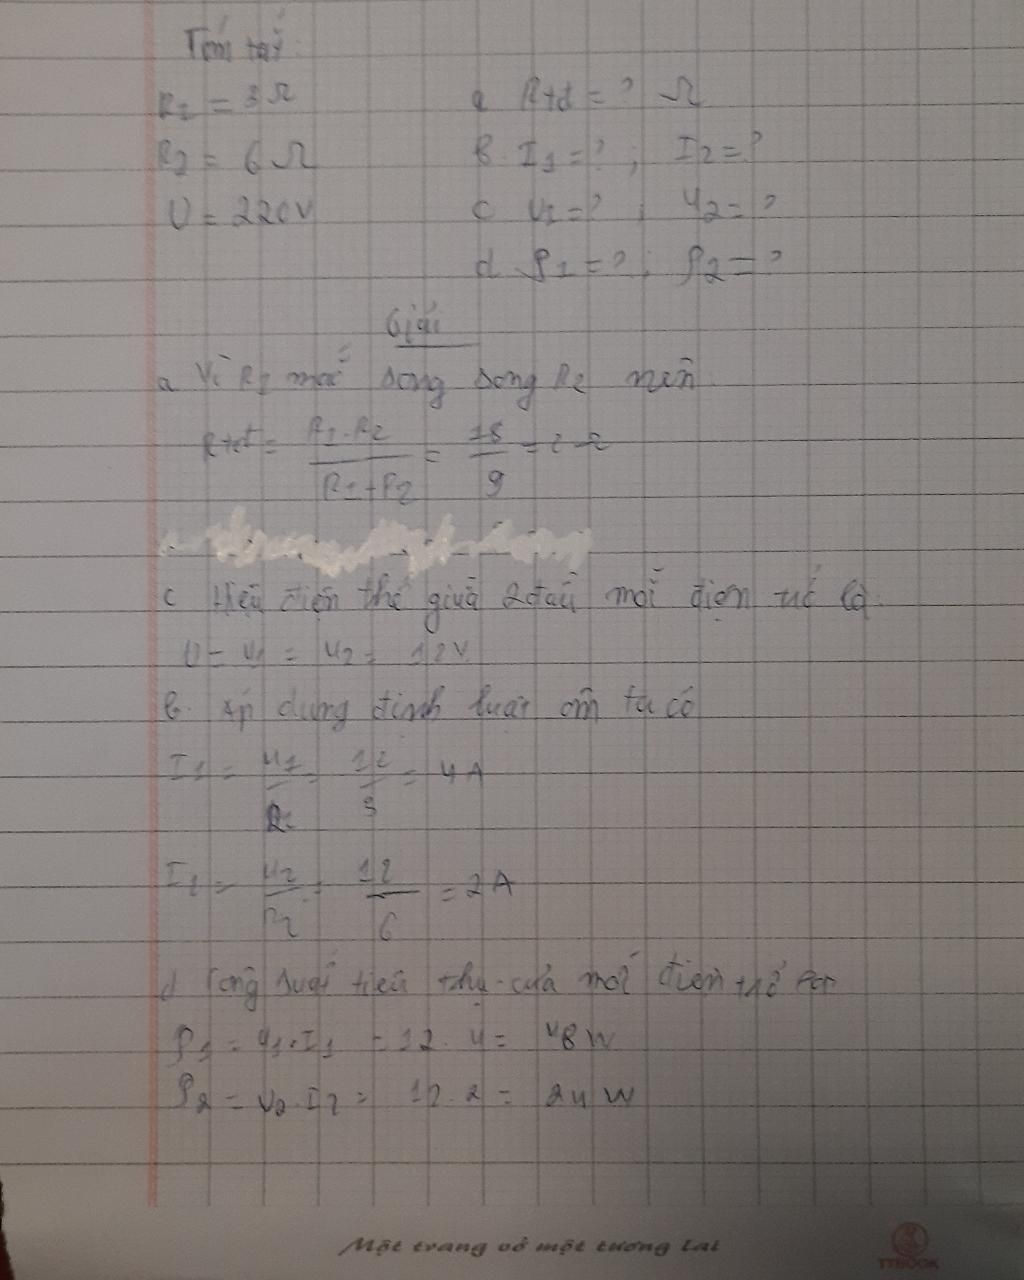 Tóm tắt:
R1 = 3Ω a Rtđ = ? Ω
R2 = 6Ω b. I1 = ? ; I2 = ?
U = 220V c U1 = ? ; U2 = ?
d P1 = ? ; P2 = ?
Giải
a Vì R1 mắc song song R2 nên
Rtđ = R1.R2 / R1+R2 = 18 / 9 = 2Ω
c Hiệu điện thế giữa 2 đầu mỗi điện trở là.
U = U1 = U2 = 12V
b. Áp dụng định luật ôm ta có
I1 = U1 / R1 = 12 / 3 = 4A
I2 = U2 / R2 = 12 / 6 = 2A
d Công suất tiêu thụ của mỗi điện trở
P1 = U1.I1 = 12.4 = 48W
P2 = U2.I2 = 12.2 = 24W
Một trang vở một tương lai
TTBOOK